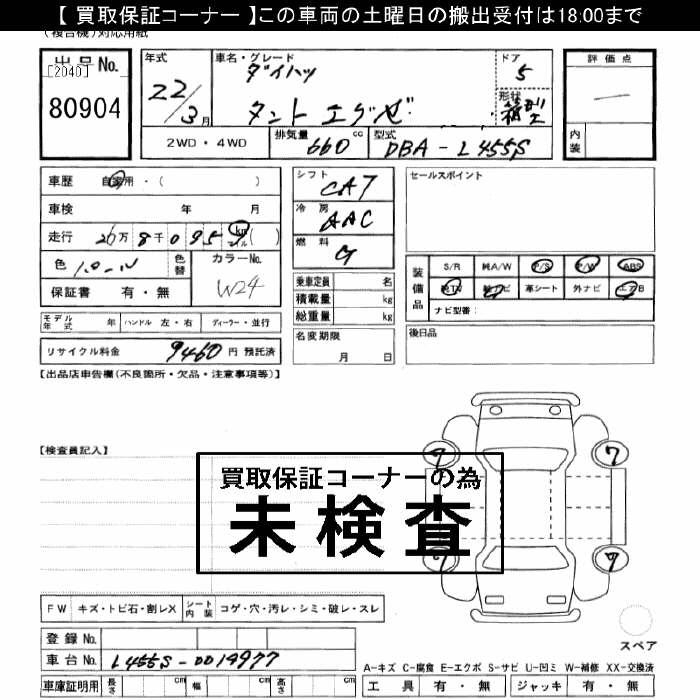 【 買取保証コーナー 】この車両の土曜日の搬出受付は18:00まで
(複合機)対応用紙
出品No.
[2040]
80904
年式
22/3月
車名・グレード
ダイハツ
タント エグゼ
ドア
5
形状
箱型
評価点
内装
2WD・4WD
排気量 660 cc
型式 DBA-L455S
車歴 自家用・( )
車検 年 月
走行 26万8千0959 km マイル ( )
色 パール 色替
カラーNo. W24
保証書 有・無
シフト CAT
冷房 AAC
燃料 G
乗車定員 名
積載量 kg
総重量 kg
セールスポイント
装備品
S/R 純A/W P/S P/W ABS
純TV 純ナビ 革シート 外ナビ エアB
ナビ型番:
モデル年式 年 ハンドル 左・右 ディーラー・並行
名変期限 月 日
後日品
リサイクル料金 9460 円 預託済
【出品店申告欄(不良箇所・欠品・注意事項等)】
【検査員記入】
買取保証コーナーの為
未検査
7 7
7 7
FW キズ・トビ石・割レX シート内装 コゲ・穴・汚レ・シミ・破レ・スレ
登録No.
車台No. L455S-0019977
車庫証明用 長さ cm 幅 cm 高さ cm
スペア
A-キズ C-腐食 E-エクボ S-サビ U-凹ミ W-補修 XX-交換済
工具 有・無 ジャッキ 有・無